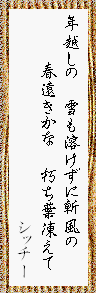 年越しの　雪も溶けずに斬風の
春遠きかな　朽ち葉凍えて
シッチー